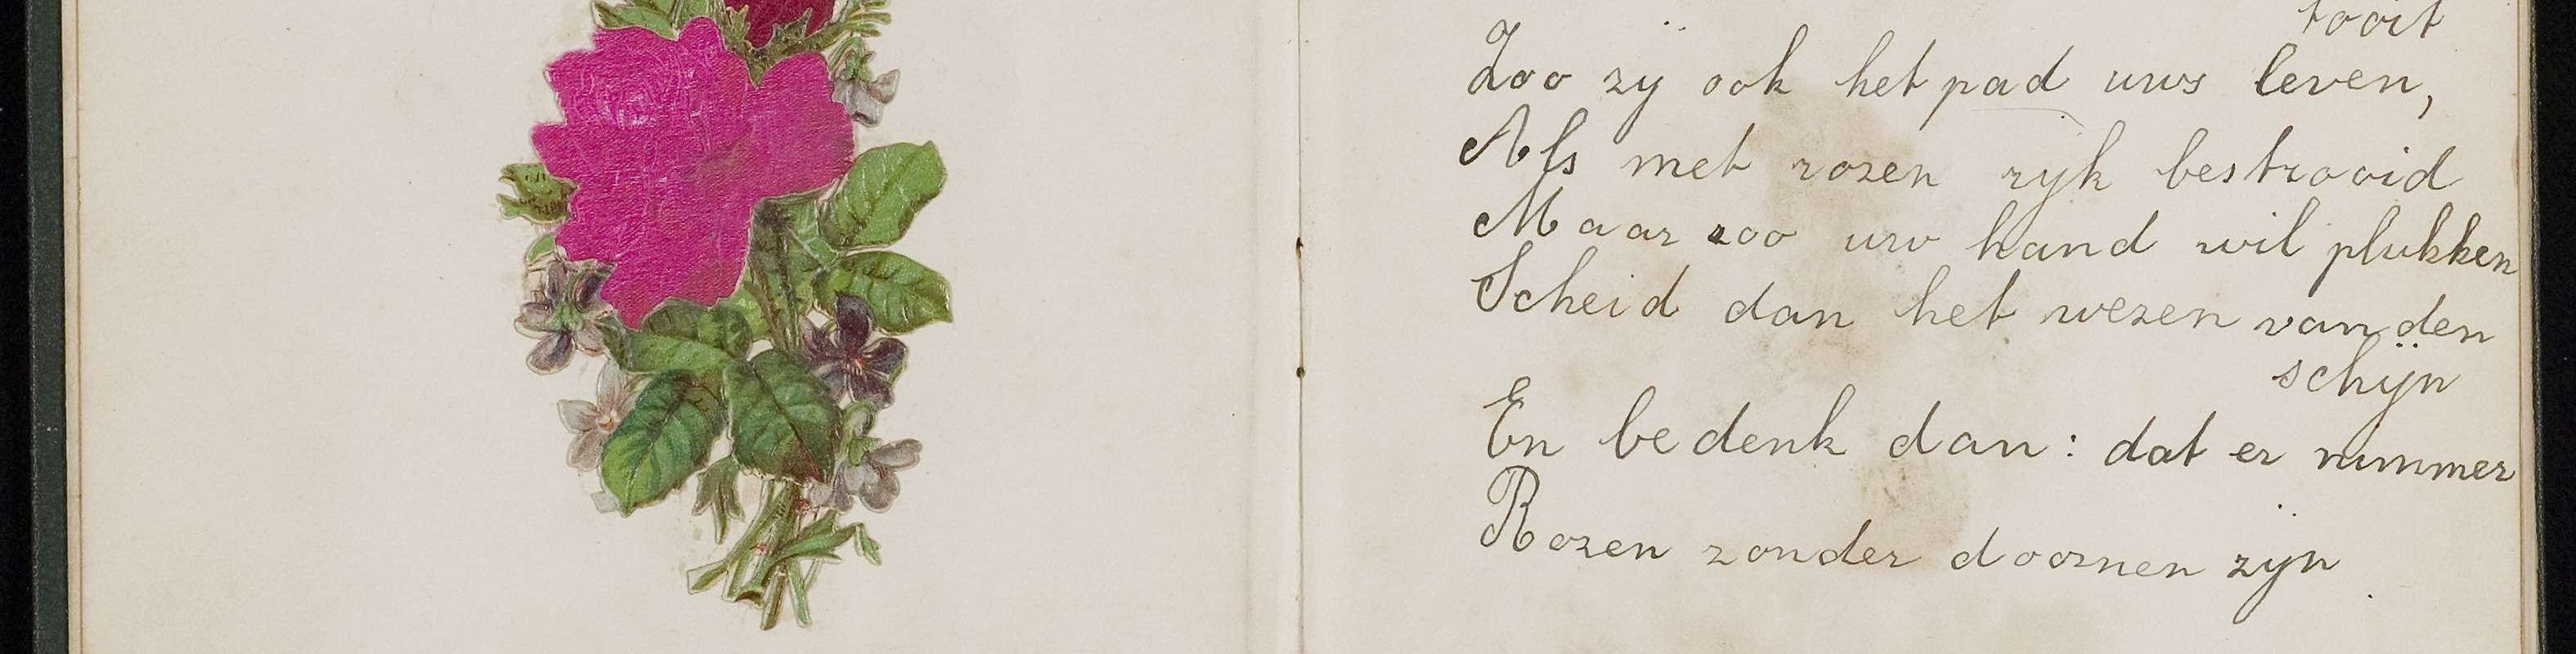 tooit
Zoo zÿ ook het pad uws leven,
Als met rozen ryk bestrooid
Maar zoo uw hand wil plukken
Scheid dan het wezen van den
schÿn
En bedenk dan: dat er nimmer
Rozen zonder doornen zyn